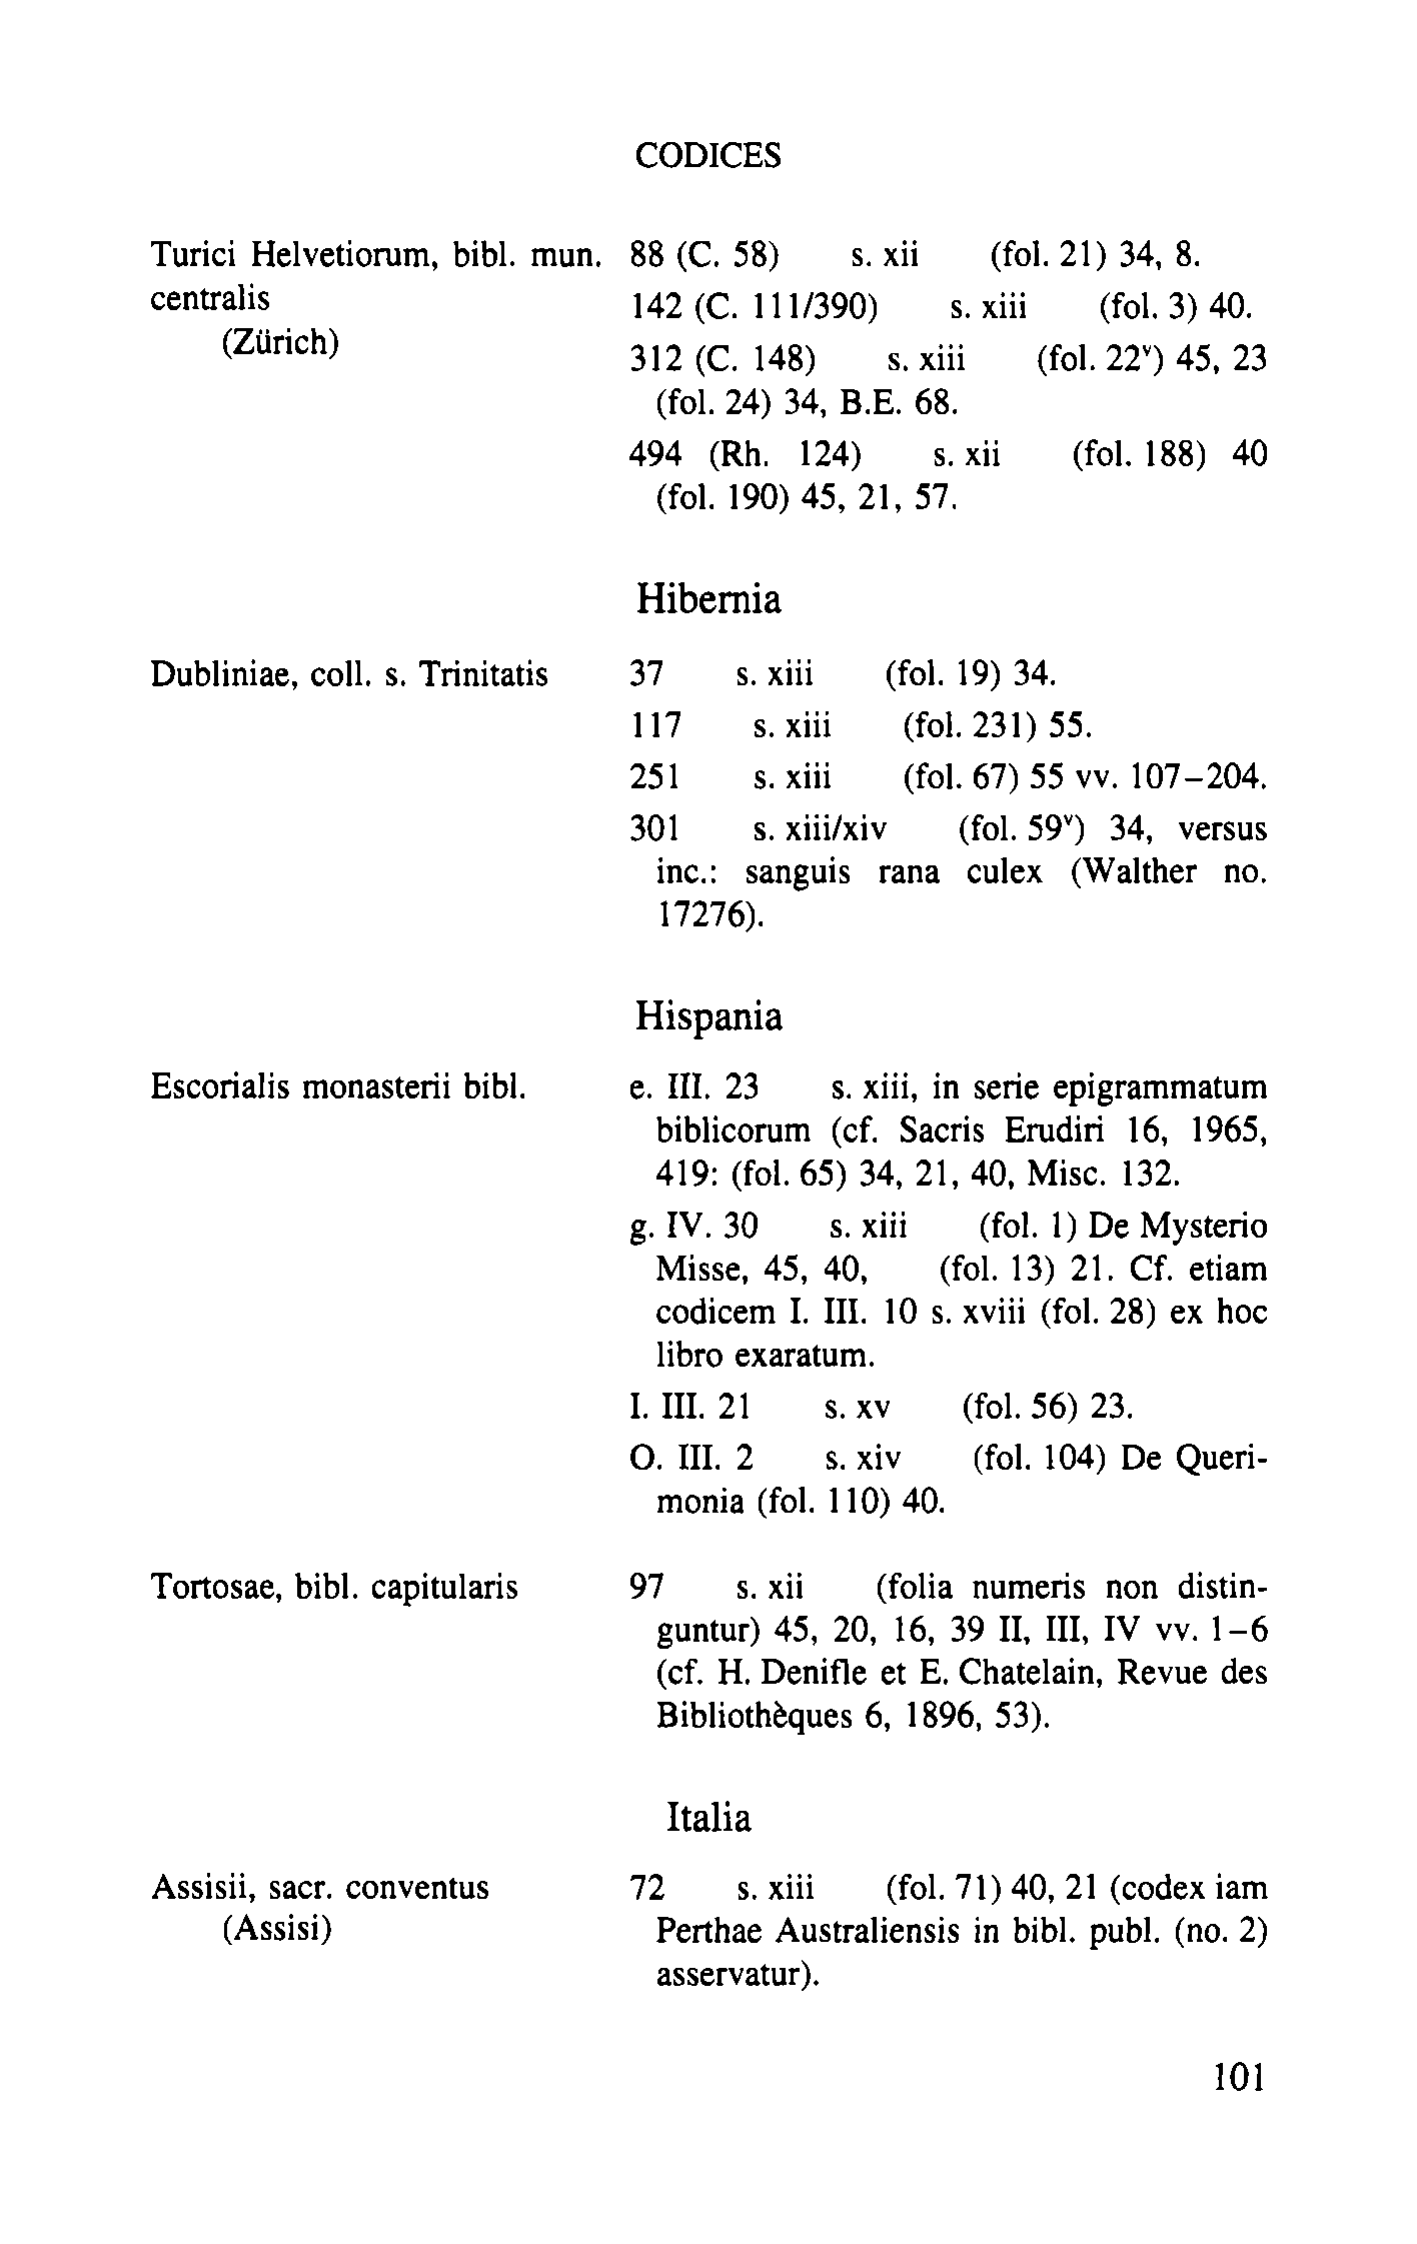 CODICES
Turici Helvetiorum, bibl. mun. 88 (C. 58) s. xii (fol. 21) 34, 8.
centralis
142 (C. 111/390) s. xiii (fol. 3) 40.
(Zürich)
312 (C. 148) s. xiii (fol. 22ᵛ) 45, 23
(fol. 24) 34, B.E. 68.
494 (Rh. 124) s. xii (fol. 188) 40
(fol. 190) 45, 21, 57.
Hibernia
Dubliniae, coll. s. Trinitatis 37 s. xiii (fol. 19) 34.
117 s. xiii (fol. 231) 55.
251 s. xiii (fol. 67) 55 vv. 107–204.
301 s. xiii/xiv (fol. 59ᵛ) 34, versus
inc.: sanguis rana culex (Walther no.
17276).
Hispania
Escorialis monasterii bibl. e. III. 23 s. xiii, in serie epigrammatum
biblicorum (cf. Sacris Erudiri 16, 1965,
419: (fol. 65) 34, 21, 40, Misc. 132.
g. IV. 30 s. xiii (fol. 1) De Mysterio
Misse, 45, 40, (fol. 13) 21. Cf. etiam
codicem I. III. 10 s. xviii (fol. 28) ex hoc
libro exaratum.
I. III. 21 s. xv (fol. 56) 23.
O. III. 2 s. xiv (fol. 104) De Queri-
monia (fol. 110) 40.
Tortosae, bibl. capitularis 97 s. xii (folia numeris non distin-
guntur) 45, 20, 16, 39 II, III, IV vv. 1–6
(cf. H. Denifle et E. Chatelain, Revue des
Bibliothèques 6, 1896, 53).
Italia
Assisii, sacr. conventus 72 s. xiii (fol. 71) 40, 21 (codex iam
(Assisi) Perthae Australiensis in bibl. publ. (no. 2)
asservatur).
101